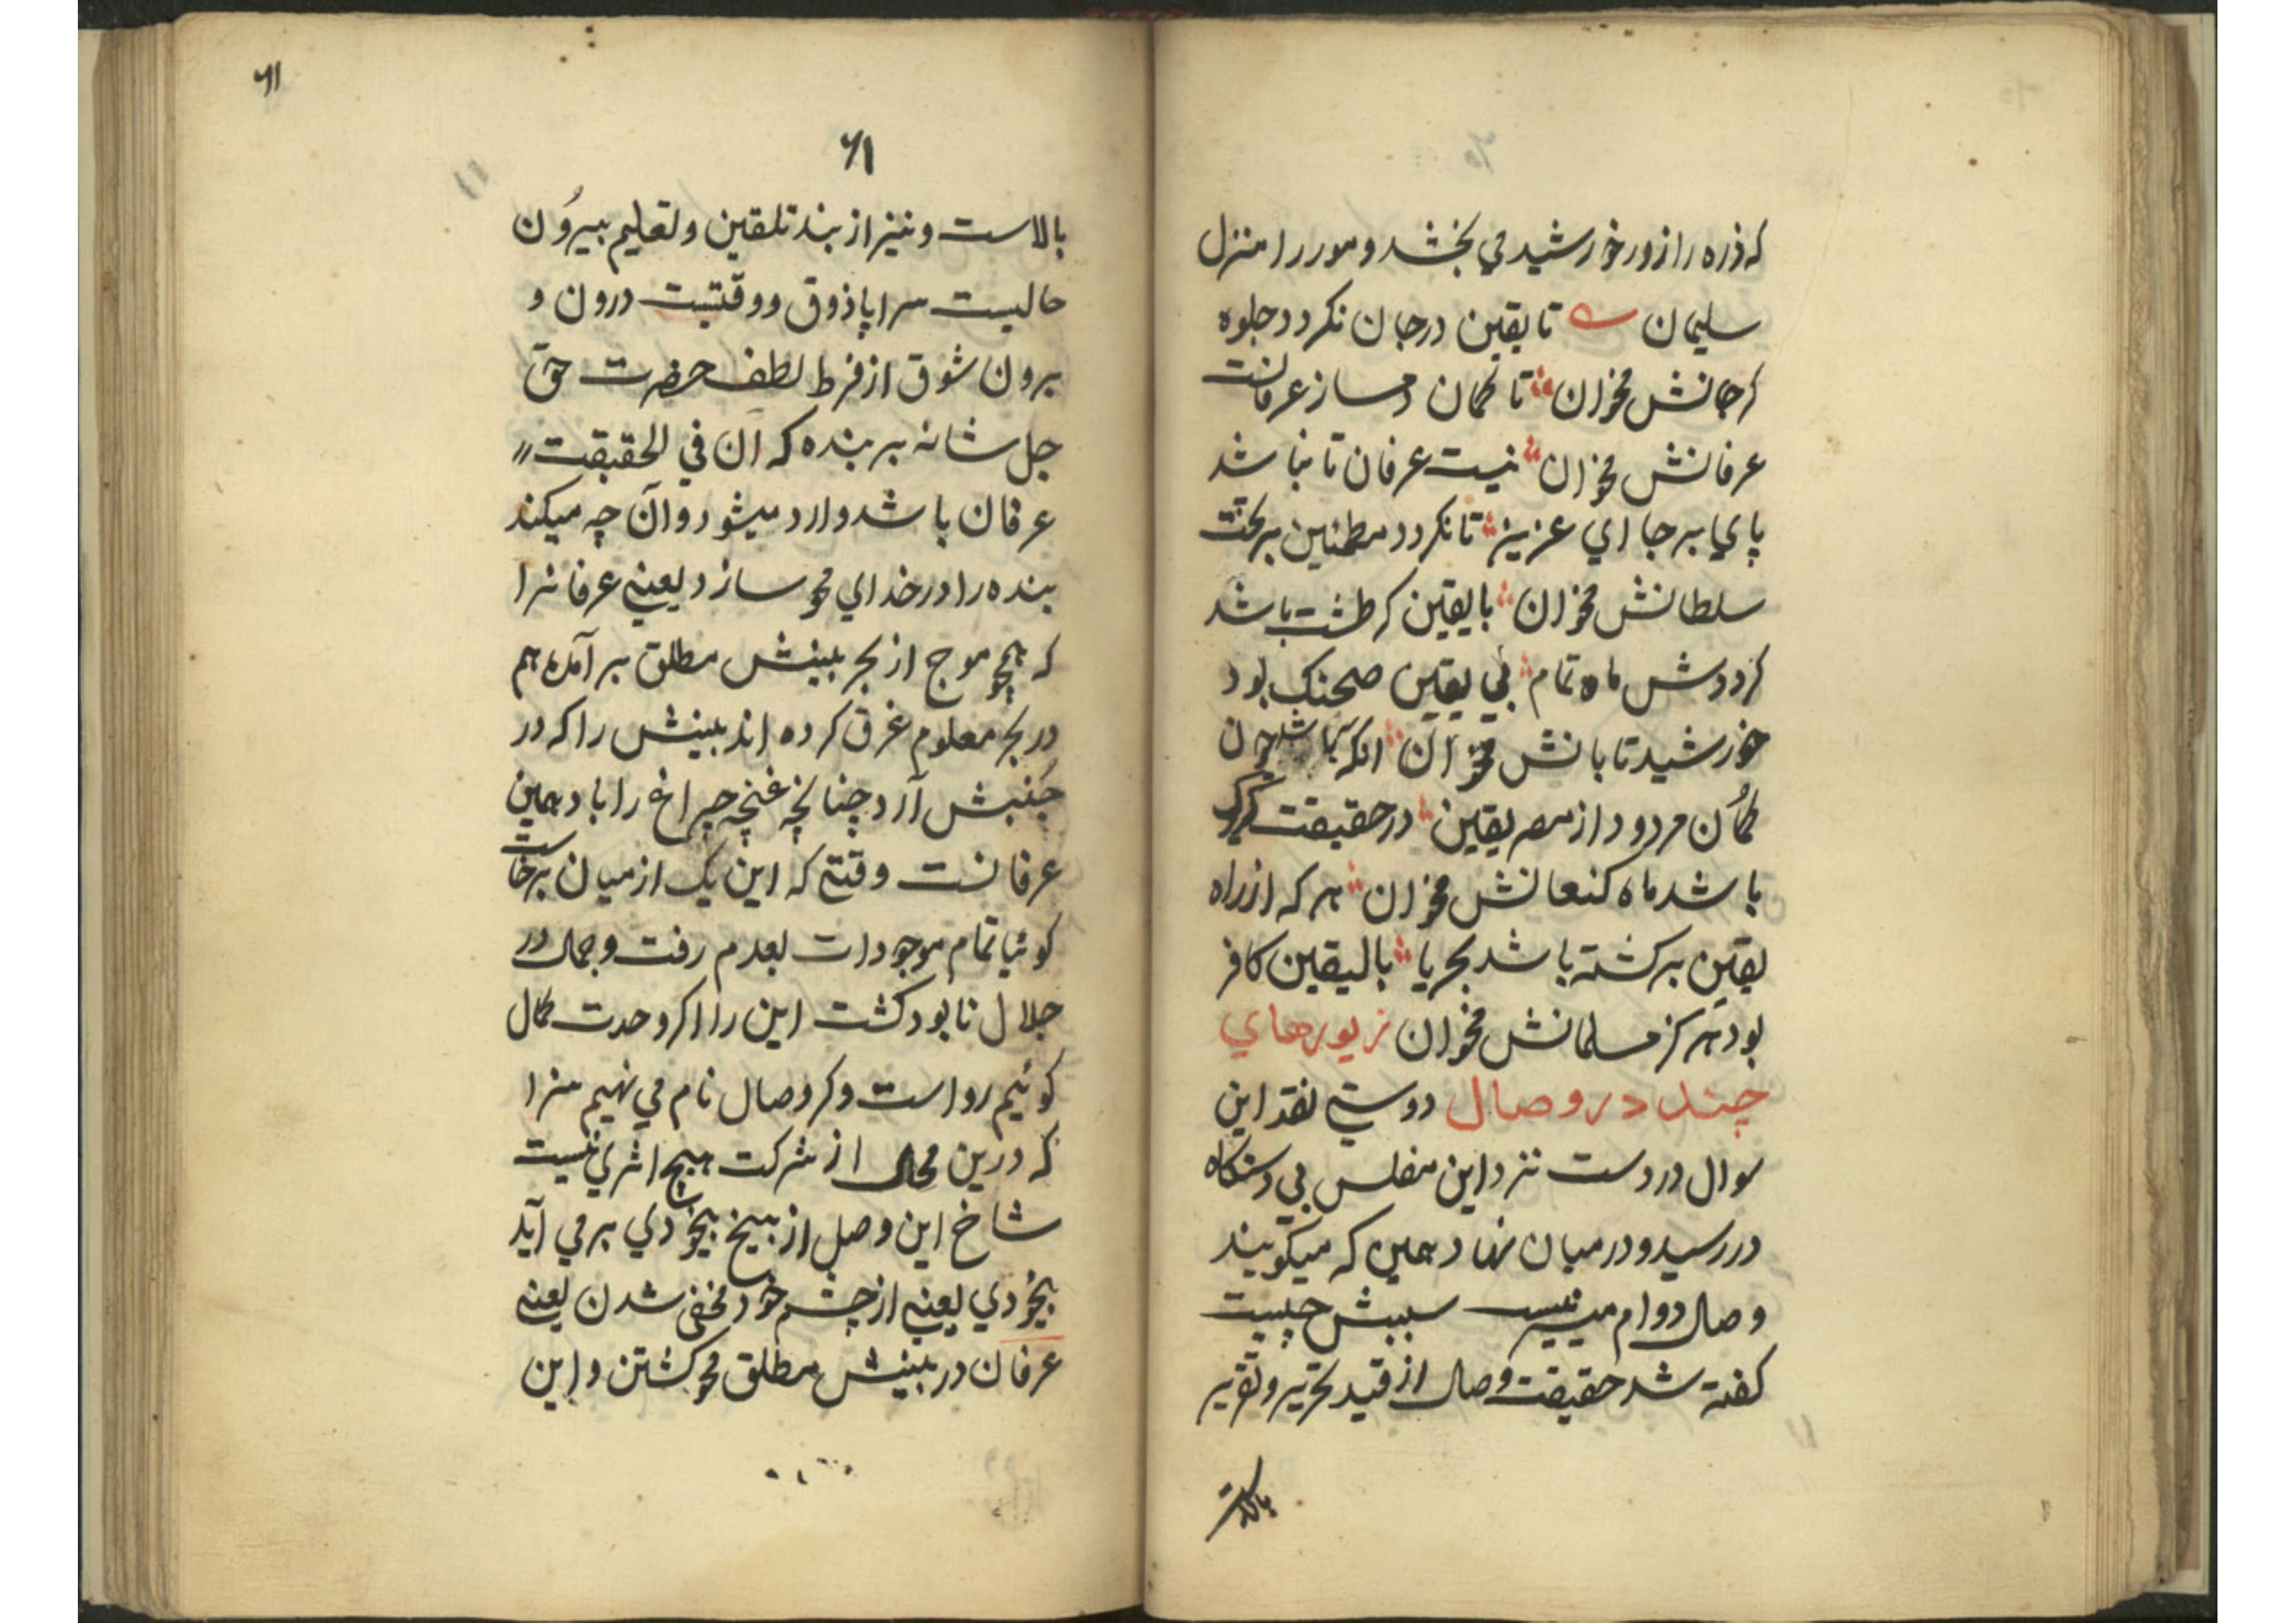 که ذره را زور خورشید می بخشد و مور را منزل
سلیمان تا یقین در جان نکردد جلوه
کر جانش مخوان تا کمان دمساز عرفانست
عرفانش مخوان نیست عرفان تا نباشد
پای بر جا ای عزیز تا نکردد مطمئین بر تخت
سلطانش مخوان با یقین کر طشت باشد
کرددش ماه تمام بی یقین صحنک بود
خورشید تابانش مخوان انکه باشد چون
کمان مردود از مصر یقین در حقیقت کر
باشد ماه کنعانش مخوان هر که از راه
یقین برکشته باشد بحریا بالیقین کافر
بود هرکز مسلمانش مخوان زیورهای
چند در وصال دوستی نقد این
سوال در دست نزد این مفلس بی دستکاه
در رسید و در میان نهاد همین که میکویند
وصال دوام میسر نیست سببش چیست
کفته شد حقیقت وصال از قید تحریر و تقریر
بالاست
۶۱
۶۱
بالاست و نیز از بند تلقین و تعلیم بیرُون
حالیست سراپا ذوق و وقتیست درون و
برون شوق از فرط لطف حضرت حق
جل شانه بر بنده که آن فی الحقیقت
عرفان باشد وارد میشود و آن چه میکند
بنده را در خدای محو سازد یعنی عرفانرا
که همچو موج از بحر بینش مطلق بر آمده هم
در بحر معلوم غرق کرده اند بینش را که در
جُنبش آرد چنانچه غنچه چراغ را باد همین
عرفانست وقتی که این یک از میان برخاست
کوئیا تمام موجودات بعدم رفت و جمال در
جلال نابود کشت این را اکر وحدت کمال
کوئیم رواست و کر وصال نام می نهیم سزا
که درین محل از شرکت هیچ اثری نیست
شاخ این وصل از بیخ بیخودی بر می آید
بیخودی یعنی از چشم خود مخفی شدن یعنی
عرفان در بینش مطلق محو کشتن و این